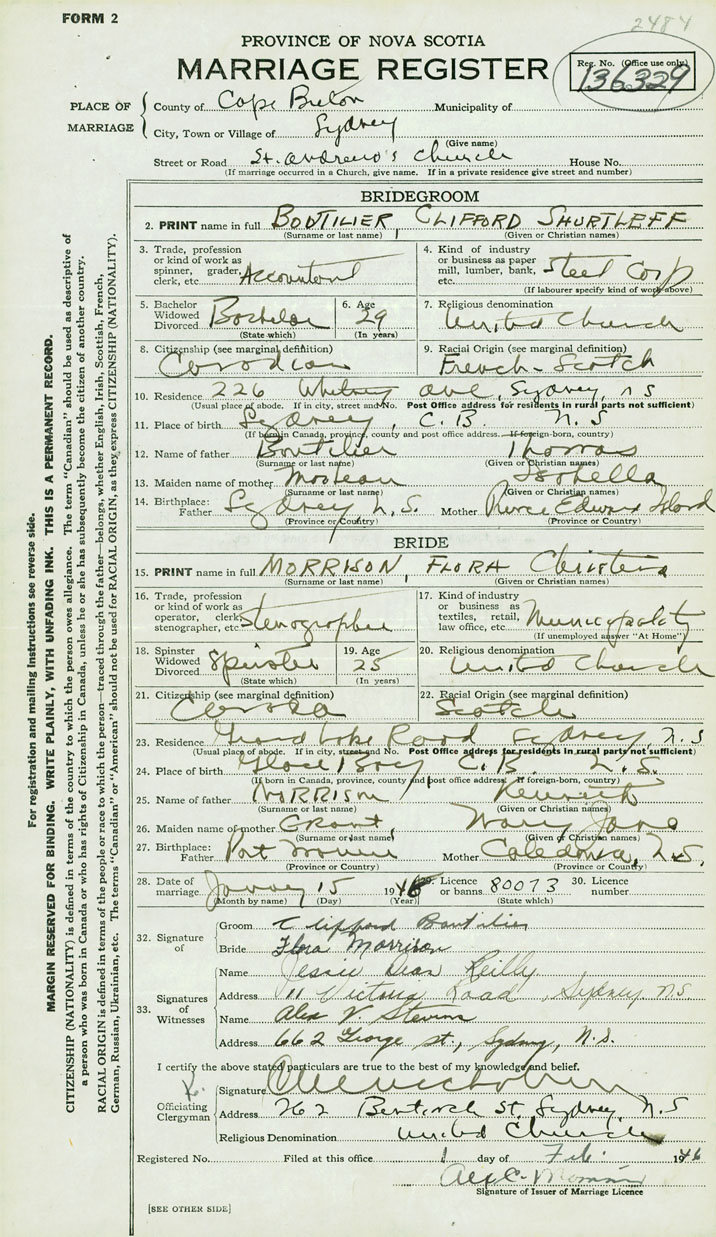 FORM 2
2484
PROVINCE OF NOVA SCOTIA
MARRIAGE REGISTER
Reg. No. (Office use only)
136329
PLACE OF MARRIAGE
County of Cape Breton Municipality of
City, Town or Village of Sydney
(Give name)
Street or Road St. Andrew's Church House No.
(If marriage occurred in a Church, give name. If in a private residence give street and number)
BRIDEGROOM
2. PRINT name in full BOUTILIER, CLIFFORD SHURTLEFF
(Surname or last name) (Given or Christian names)
3. Trade, profession or kind of work as spinner, grader, clerk, etc. Accountant
4. Kind of industry or business as paper mill, lumber, bank, etc. Steel Corp
(If labourer specify kind of work above)
5. Bachelor Widowed Divorced Bachelor
(State which)
6. Age 29
(In years)
7. Religious denomination United Church
8. Citizenship (see marginal definition) Canadian
9. Racial Origin (see marginal definition) French-Scotch
10. Residence 226 Whitney Ave, Sydney, N S
(Usual place of abode. If in city, street and No. Post Office address for residents in rural parts not sufficient)
11. Place of birth Sydney, C. B. N. S
(If born in Canada, province, county and post office address. If foreign-born, country)
12. Name of father Boutilier Thomas
(Surname or last name) (Given or Christian names)
13. Maiden name of mother Isabella
(Surname or last name) (Given or Christian names)
14. Birthplace: Father Sydney N. S. Mother Prince Edward Island
(Province or Country) (Province or Country)
BRIDE
15. PRINT name in full MORRISON, FLORA Christena
(Surname or last name) (Given or Christian names)
16. Trade, profession or kind of work as operator, clerk, stenographer, etc. Stenographer
17. Kind of industry or business as textiles, retail, law office, etc. Municipality
(If unemployed answer "At Home")
18. Spinster Widowed Divorced Spinster
(State which)
19. Age 25
(In years)
20. Religious denomination United Church
21. Citizenship (see marginal definition)
22. Racial Origin (see marginal definition) Scotch
23. Residence Grand Lake Road Sydney, N. S
(Usual place of abode. If in city, street and No. Post Office address for residents in rural parts not sufficient)
24. Place of birth Glace Bay C. B. N. S.
(If born in Canada, province, county and post office address. If foreign-born, country)
25. Name of father MORRISON Kenneth
(Surname or last name) (Given or Christian names)
26. Maiden name of mother Grant, Mary Jane
(Surname or last name) (Given or Christian names)
27. Birthplace: Father Port Morien Mother Caledonia, N. S.
(Province or Country) (Province or Country)
28. Date of marriage 15 1946
(Month by name) (Day) (Year)
29. Licence or banns 80073
(State which)
30. Licence number
32. Signature of
Groom Clifford Boutilier
Bride Flora Morrison
33. Signatures of Witnesses
Name Jessie Dean Reilly
Address 11 Victoria Road, Sydney N.S.
Name Alex V. Stevens
Address 662 George St., Sydney, N.S.
I certify the above stated particulars are true to the best of my knowledge and belief.
Officiating Clergyman
Signature
Address 262 Bentinck St. Sydney, N. S
Religious Denomination United Church
Registered No. Filed at this office 1 day of Feb. 1946
Signature of Issuer of Marriage Licence
[SEE OTHER SIDE]
For registration and mailing instructions see reverse side.
MARGIN RESERVED FOR BINDING. WRITE PLAINLY, WITH UNFADING INK. THIS IS A PERMANENT RECORD.
CITIZENSHIP (NATIONALITY) is defined in terms of the country to which the person owes allegiance. The term "Canadian" should be used as descriptive of
a person who was born in Canada or who has rights of Citizenship in Canada, unless he or she has subsequently become the citizen of another country.
RACIAL ORIGIN is defined in terms of the people or race to which the person—traced through the father—belongs, whether English, Irish, Scottish, French,
German, Russian, Ukrainian, etc. The terms "Canadian" or "American" should not be used for RACIAL ORIGIN, as they express CITIZENSHIP (NATIONALITY).